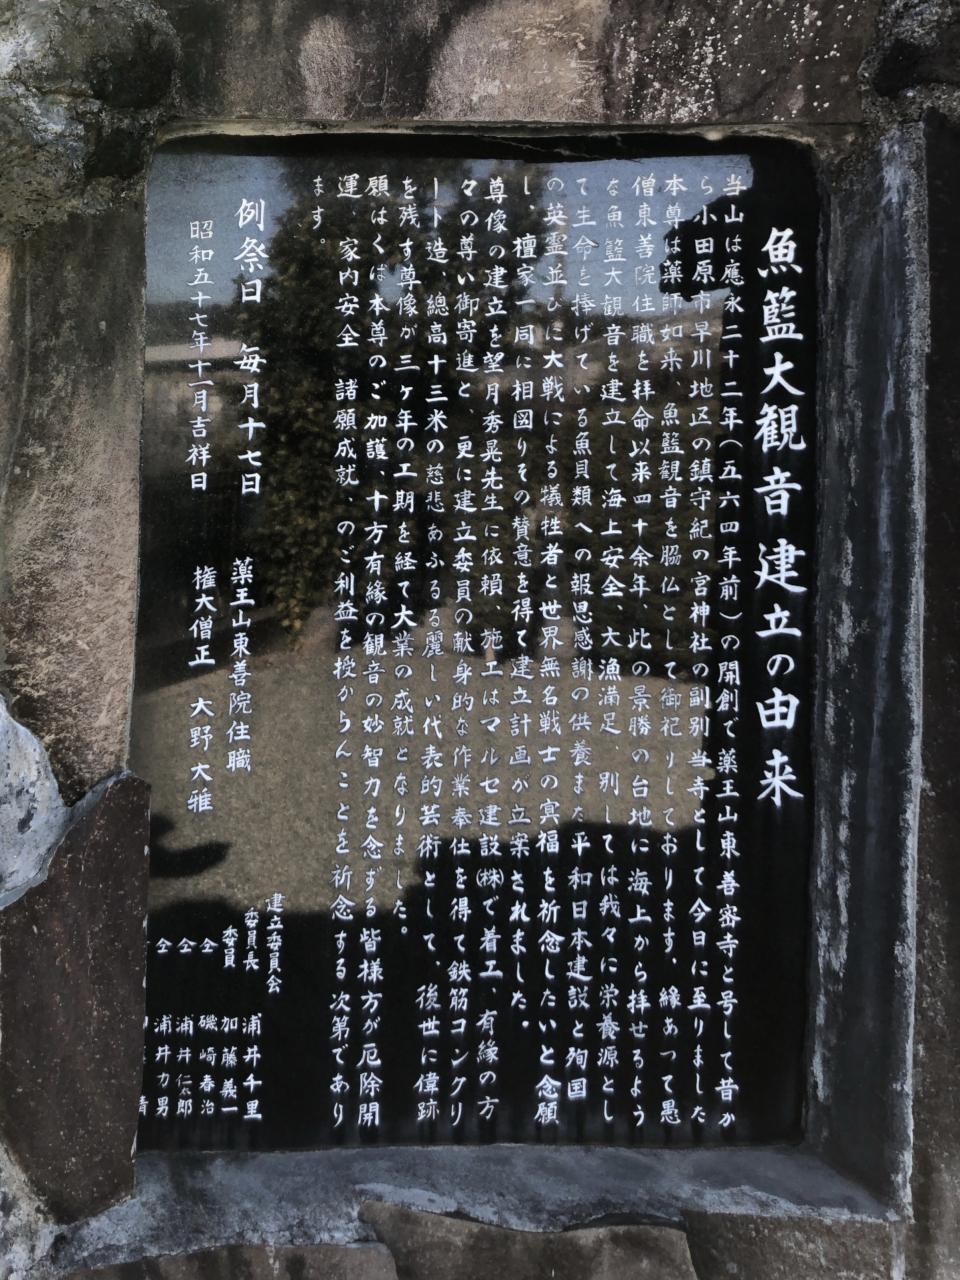 魚籃大観音建立の由来
当山は應永二十二年(五六四年前)の開創で薬王山東善密寺と号して昔か
ら小田原市早川地区の鎮守紀の宮神社の副別当寺として今日に至りました
本尊は薬師如来、魚籃観音を脇仏として御祀りしております、縁あって愚
僧東善院住職を拝命以来四十余年、此の景勝の台地に海上から拝せるよう
な魚籃大観音を建立して海上安全、大漁満足、別しては我々に栄養源とし
て生命を捧げている魚貝類への報恩感謝の供養また平和日本建設と殉国
の英霊並びに大戦による犠牲者と世界無名戦士の冥福を祈念したいと念願
し、檀家一同に相図りその賛意を得て建立計画が立案されました。
尊像の建立を望月秀晃先生に依頼、施工はマルセ建設㈱で着工、有縁の方
々の尊い御寄進と、更に建立委員の献身的な作業奉仕を得て鉄筋コンクリ
ート造、総高十三米の慈悲あふるる麗しい代表的芸術として、後世に偉跡
を残す尊像が三ヶ年の工期を経て大業の成就となりました。
願はくば本尊のご加護、十方有縁の観音の妙智力を念ずる皆様方が厄除開
運、家内安全、諸願成就、のご利益を授からんことを祈念する次第であり
ます。
例祭日 毎月十七日
昭和五十七年十一月吉祥日
薬王山東善院住職
権大僧正 大野大雅
建立委員会
委員長 浦井千里
委員 加藤義一
仝 磯崎春治
仝 浦井仁太郎
仝 浦井力男